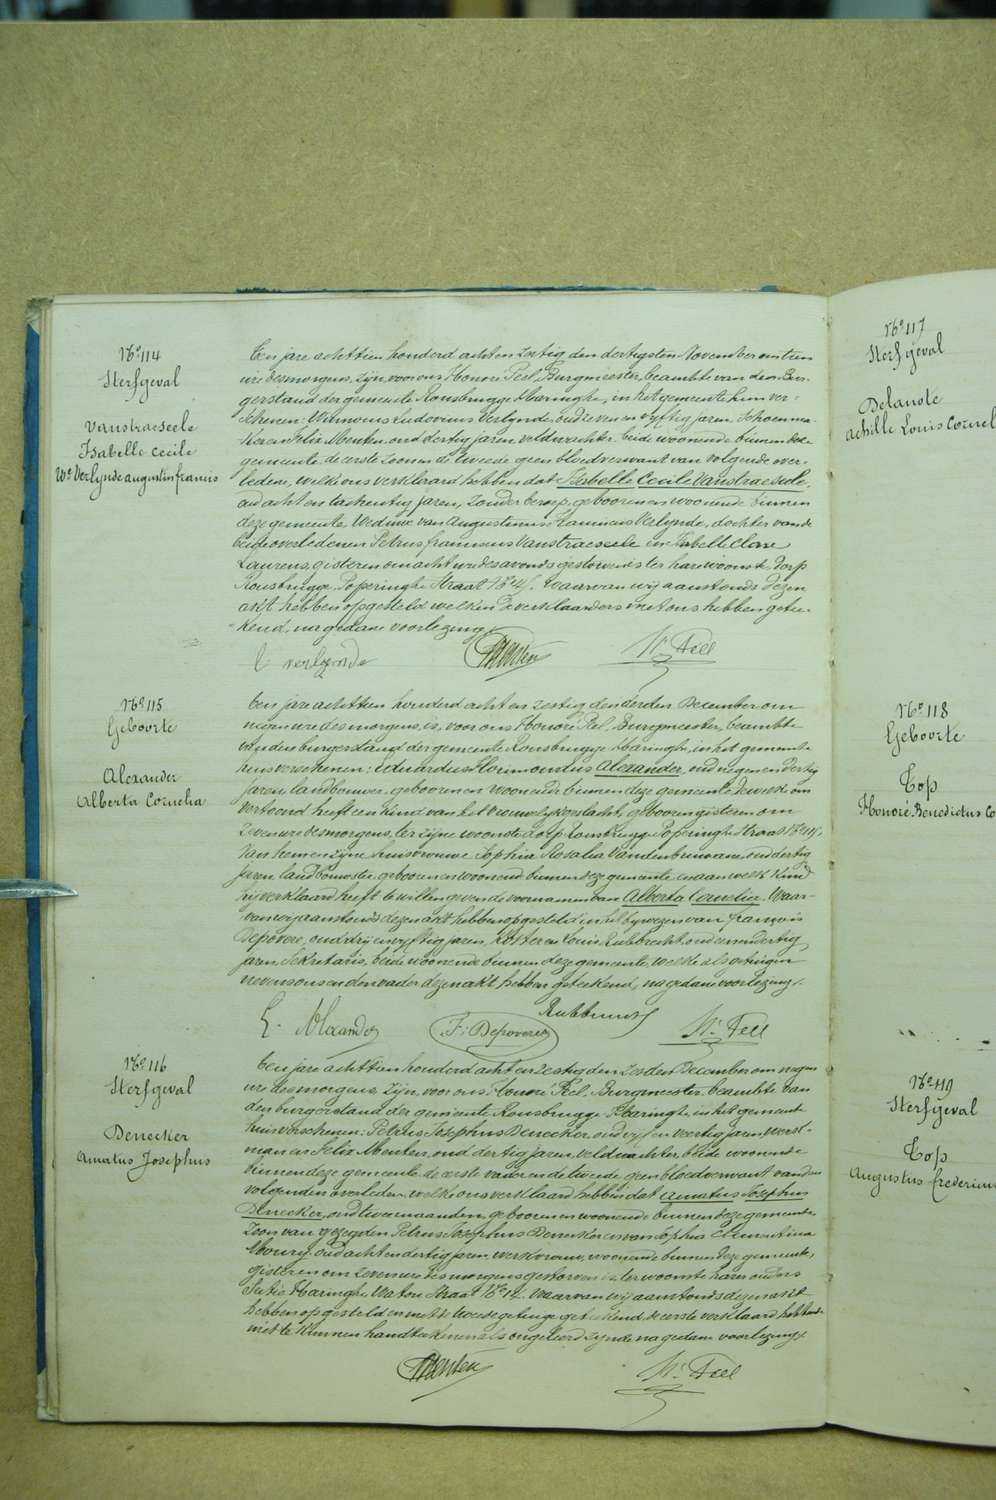 No 114
Sterfgeval
Vanstraeseele
Isabelle Cecile
We Verlynde augustin francis
Een jare achttien honderd acht en zestig den dertigsten November om tien
ure des morgens, zijn, voor ons Honoré Feel, Burgmeester, beambte van den Bur-
gerstand der gemeente Rousbrugge Haringhe, in het gemeentehuis ver-
schenen: Ludovicus Verlynde, oud zeven en vyftig jaren, Schoenma-
ker en Felix Menten oud dertig jaren veldwachter, beide woonende binnen deze
gemeente de eerste zoon en de tweede geen bloedverwant van volgende over-
ledene, welk ons verklaard hebben dat Isabelle Cecile Vanstraeseele,
oud acht en tachentig jaren, zonder beroep, geboren en woonende binnen
deze gemeente, Weduwe van Augustinus Franciscus Verlynde, dochter van de
beide overledenen Petrus franciscus Vanstraeseele en Isabelle Clare
Laurens, gisteren om acht ure des avonds gestorven is ter harer woonst dorp
Rousbrugge Poperinghe Straat No 41. Waarvan wij aanstonds dezen
akt hebben opgesteld welken de verklaarders met ons hebben getee-
kend, na gedane voorlezing.
L verlynde Menten H. Feel
No 115
Geboorte
Alexander
Alberta Cornelia
Een jare achttien honderd acht en zestig den derden December om
negen ure des morgens, is, voor ons Honoré Feel, Burgmeester, beambte
van den burgerstand der gemeente Rousbrugge Haringhe, in het gemeente
huis verschenen: Eduardus Florimondus Alexander, oud negen en dertig
jaren, landbouwer, geboren en woonende binnen deze gemeente dewelke ons
vertoond heeft een kind van het vrouwelijk geslacht, geboren gisteren om
zeven ure des morgens, ter zijne woonste dorp Rousbrugge Poperinghe Straat No
van hem en zijne huisvrouwe Sophia Rosalia oud dertig
jaren landbouwster, geboren en woonend binnen deze gemeente en aan welk kind
hij verklaard heeft te willen geven de voornamen van Alberta Cornelia. Waar-
van wij aanstonds dezen akt hebben opgesteld in het bywezen van françois
Depovere, oud drij en vyftig jaren, koster en Louis Rubbrecht, oud een en dertig
jaren, Sekretaris, beide woonende binnen deze gemeente, welke als getuigen
nevens ons en den vader dezen akt hebben geteekend, na gedane voorlezing.
E. Alexander F: Depovere Rubbrecht H. Feel
No 116
Sterfgeval
Denecker
Amatus Josephus
Een jare achttien honderd acht en zestig den zesden December om negen
ure des morgens, zijn, voor ons Honoré Feel, Burgmeester, beambte van
den burgerstand der gemeente Rousbrugge Haringhe, in het gemeente
huis verschenen: Petrus Josephus Denecker, oud vijf en veertig jaren, werk-
man en Felix Menten, oud dertig jaren, veldwachter, beide woonende
binnen deze gemeente de eerste vader en de tweede geen bloedverwant van den
volgenden overleden, welk ons verklaard hebben dat Amatus Josephus
Denecker, oud twee maanden, geboren en woonende binnen deze gemeente,
zoon van gezegden Petrus Josephus Denecker en van Sophia Clementina
oud acht en dertig jaren, werkvrouw, woonende binnen deze gemeente,
gisteren om zeven ure des morgens gestorven is, ter woonste harer ouders
Sectie Haringhe Watou Straat No 12. Waarvan wij aanstonds dezen akt
hebben opgesteld en met de tweede getuige geteekend, de eerste verklaard hebbende
niet te kunnen handteekenen als ongeleerd zijnde, na gedane voorlezing.
Menten H. Feel
No 117
Sterfgeval
Delanote
achille Louis Cornel
No 118
Geboorte
Top
Honoré Benedictus Co
No 119
Sterfgeval
Top
Augustus frederiu